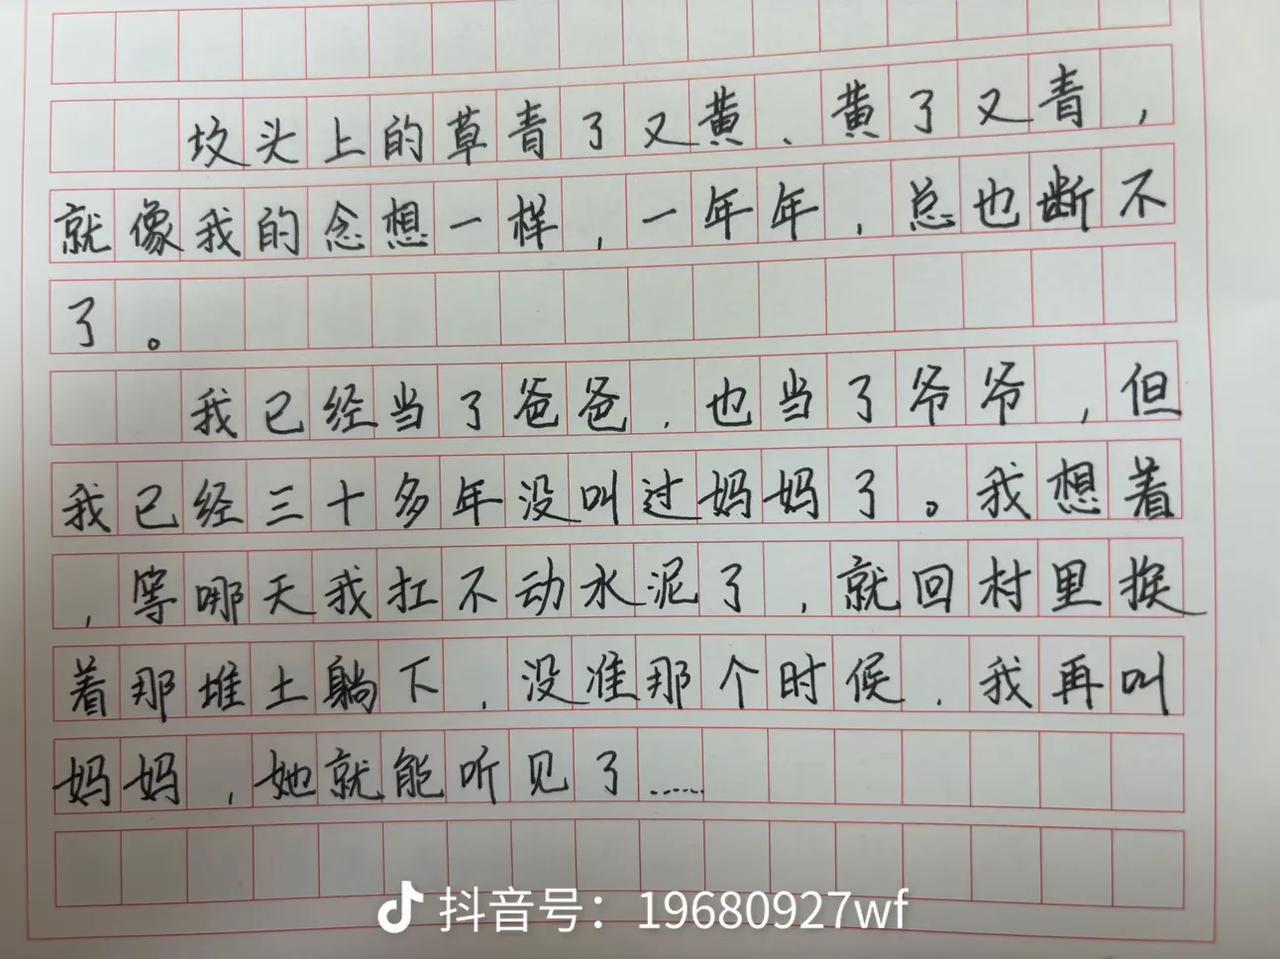 坟头上的草青了又黄、黄了又青，
就像我的念想一样，一年年，总也断不
了。
我已经当了爸爸，也当了爷爷，但
我已经三十多年没叫过妈妈了。我想着
，等哪天我扛不动水泥了，就回村里挨
着那堆土躺下，没准那个时候，我再叫
妈妈，她就能听见了……
抖音号：19680927wf